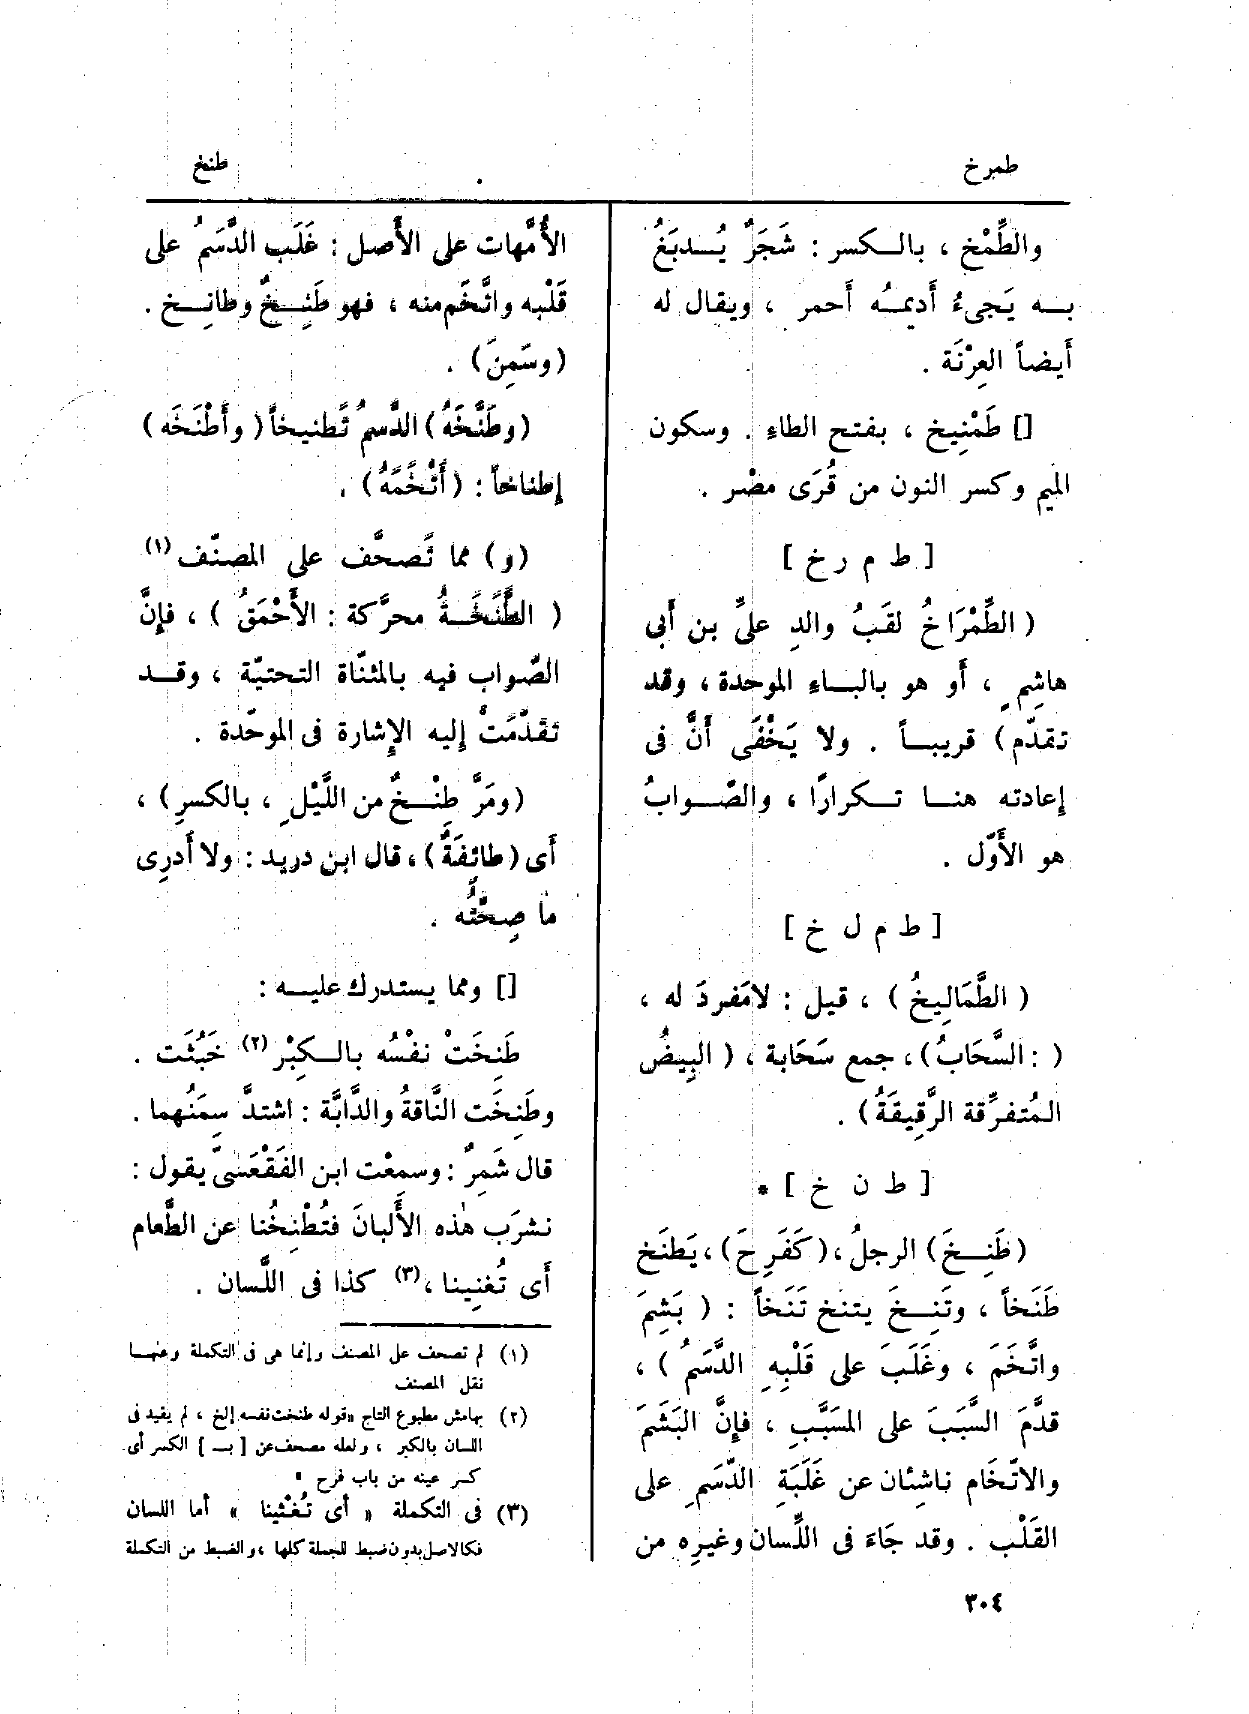 طمرخ
طنخ
والطِّمْخ ، بالكسر : شَجَرٌ يُدبَغُ
به يَجِىءُ أَديمُه أَحمر ، ويقال له
أَيضاً العِرْنَة .
[] طَمْنِيخ ، بفتح الطاءِ . وسكون
الميم وكسر النون من قُرَى مصْر .
[ ط م ر خ ]
( الطِّمْرَاخُ لقَبُ والدِ علىِّ بن أَبى
هاشِمٍ ، أَو هو بالباءِ الموحدة ، وقد
تقدّم ) قريباً . ولا يَخْفَى أَنَّ فى
إعادته هنا تكرارًا ، والصّوابُ
هو الأَوّل .
[ ط م ل خ ]
( الطَّمَالِيخُ ) ، قيل : لامَفردَ له ،
( : السَّحَابُ ) ، جمع سَحَابة ، ( البِيضُ
المُتفرِّقة الرَّقِيقَةُ ) .
[ ط ن خ ] *
( طَنِخَ ) الرجلُ ، ( كَفَرِحَ ) ، يَطنَخ
طَنَخاً ، وتَنِخَ يتنخ تَنَخاً : ( بَشِمَ
واتَّخَمَ ، وغَلَبَ على قَلْبِهِ الدَّسَمُ ) ،
قدَّمَ السَّبَبَ على المسَبَّبِ ، فإنَّ البَشَمَ
والاتّخَام ناشِئان عن غَلَبَةِ الدّسَمِ على
القَلْب . وقد جَاءَ فى اللِّسان وغيرِه من
الأُمَّهات على الأَصل : غَلَب الدَّسَمُ على
قَلْبه واتَّخَم منه ، فهو طَنِخٌ وطانِخ .
( وسَمِنَ ) .
( وطَنَّخَهُ ) الدَّسمُ تَطنيخاً ( وأَطْنَخَه )
إطناخاً : ( أَتْخَمَهُ ) .
( و ) مما تَصحَّف على المصنّف (١)
( الطَّنَخَةُ محرَّكة : الأَحْمَقُ ) ، فإنَّ
الصّواب فيه بالمثنّاة التحتيّة ، وقد
تقدّمَتْ إليه الإشارة فى الموحّدة .
( ومَرَّ طِنْخٌ من اللَّيْلِ ، بالكسرِ ) ،
أَى ( طائِفَةٌ ) ، قال ابن دريد : ولا أَدرِى
ما صِحَّتُه .
[] ومما يستدرك عليه :
طَنِخَتْ نفْسُه بالكِبْر (٢) خَبُثَت .
وطَنِخَت النَّاقةُ والدَّابَّة : اشتدَّ سِمَنُهما .
قال شَمِرٌ : وسمِعْت ابن الفَقْعَسىّ يقول :
نشرَب هٰذه الأَلبانَ فتُطْنِخُنا عن الطَّعام
أَى تُغنِينا ، (٣) كذا فى اللَّسان .
(١) لم تصحف على المصنف وإنما هى فى التكملة وعنها
نقل المصنف
(٢) بهامش مطبوع التاج «قوله طنخت نفسه إلخ ، لم يقيد فى
اللسان بالكبر ، ولعله مصحف عن [ بـ ] الكسر أى
كسر عينه من باب فرح»
(٣) فى التكملة « أى تُغْثِينا » أما اللسان
فكالاصل بدون ضبط للجملة كلها ، والضبط من التكملة
٣٠٤